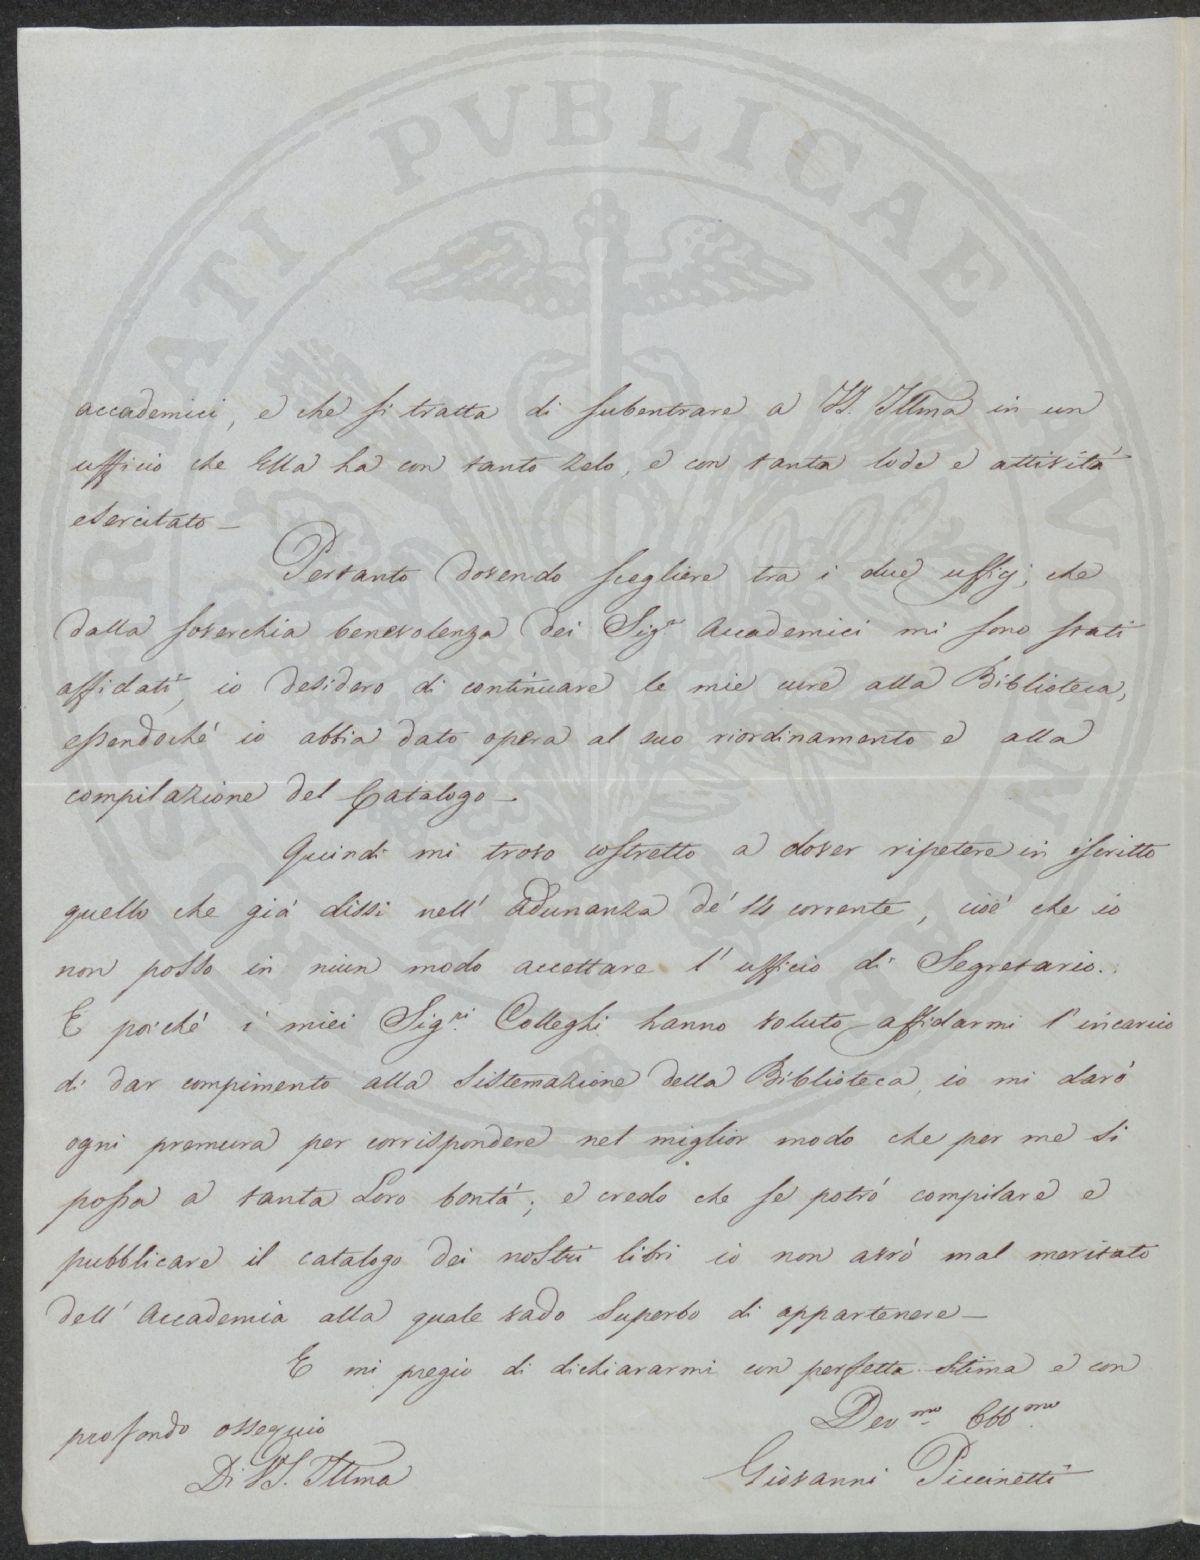 accademici, e che si tratta di subentrare a VS. Illma in un
ufficio che Ella ha con tanto zelo, e con tanta lode e attività
esercitato —
Pertanto dovendo scegliere tra i due uffici, che
dalla soverchia benevolenza dei Sigri Accademici mi sono stati
affidati, io desidero di continuare le mie cure alla Biblioteca,
essendochè io abbia dato opera al suo riordinamento e alla
compilazione del Catalogo —
Quindi mi trovo costretto a dover ripetere in iscritto
quello che già dissi nell' adunanza de' 14 corrente, cioè che io
non posso in niun modo accettare l' ufficio di Segretario.
E poichè i miei Sigri Colleghi hanno voluto affidarmi l' incarico
di dar compimento alla sistemazione della Biblioteca, io mi darò
ogni premura per corrispondere nel miglior modo che per me si
possa a tanta Loro bontà; e credo che se potrò compilare e
pubblicare il catalogo dei nostri libri io non avrò mal meritato
dell' Accademia alla quale vado superbo di appartenere —
E mi pregio di dichiararmi con perfetta stima e con
profondo ossequio
Di VS. Illma
Devmo Obbmo
Giovanni Piccinetti
PUBLICAE